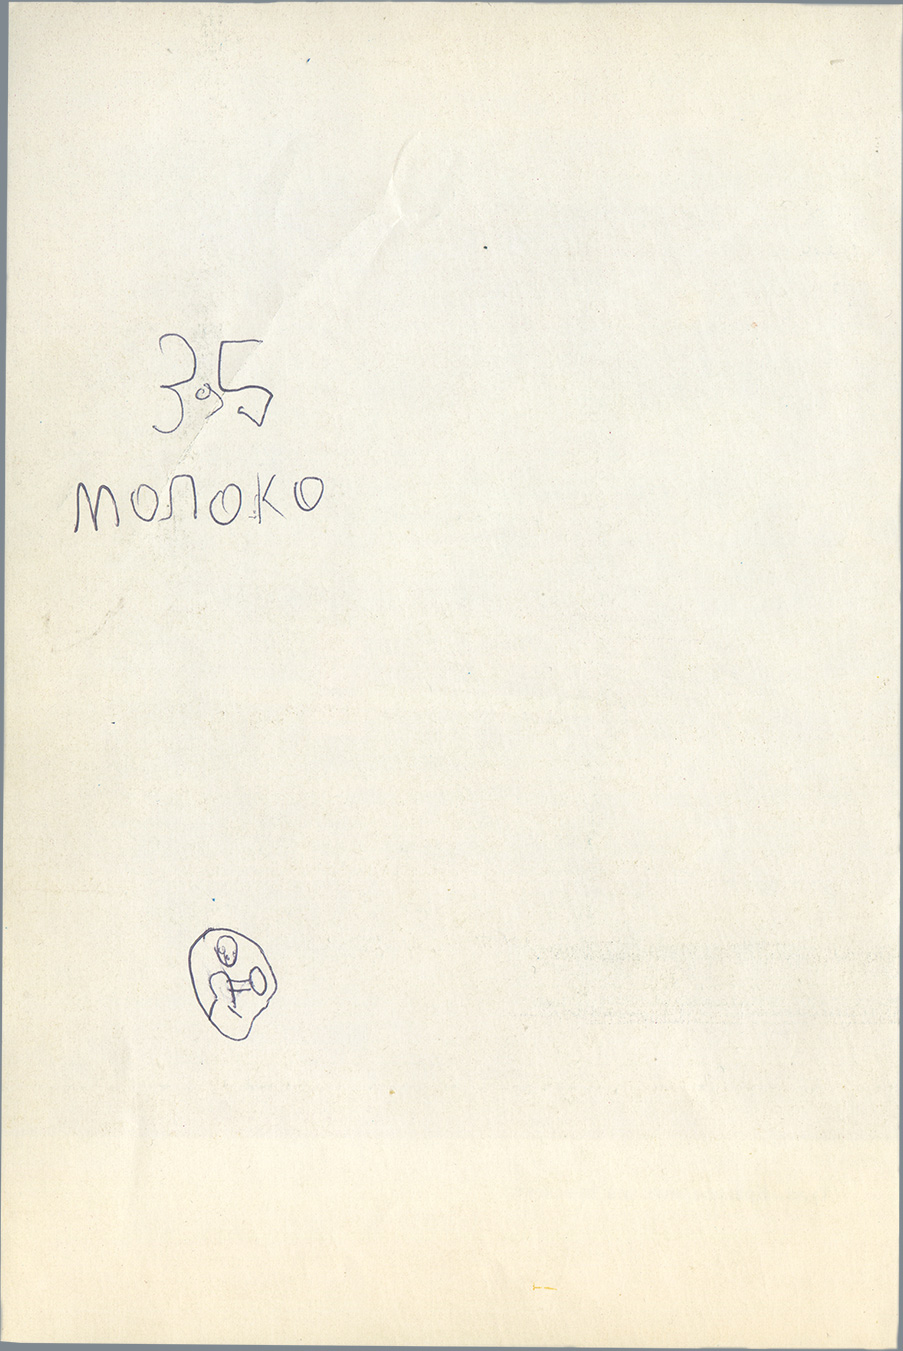 3,5
молоко